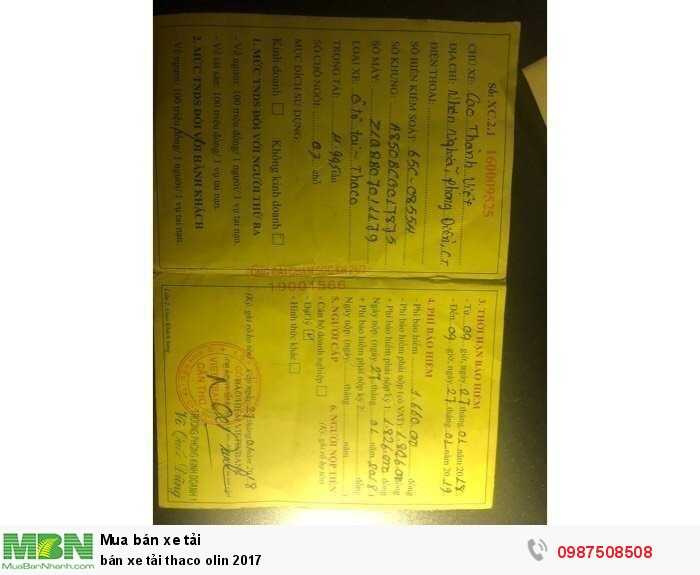 Số: XC.2.1 160009525
CHỦ XE: Cao Thành Việt
ĐỊA CHỈ: Nhơn Nghĩa, Phong Điền, C.T
ĐIỆN THOẠI:
SỐ BIỂN KIỂM SOÁT: 65C-08554
SỐ KHUNG:
SỐ MÁY:
LOẠI XE: Ô tô tải - Thaco
TRỌNG TẢI: tấn
SỐ CHỖ NGỒI: 03 chỗ
MỤC ĐÍCH SỬ DỤNG:
Kinh doanh Không kinh doanh
1. MỨC TNDS ĐỐI VỚI NGƯỜI THỨ BA
- Về người: 100 triệu đồng/ 1 người/ 1 vụ tai nạn.
- Về tài sản: 100 triệu đồng/ 1 vụ tai nạn.
2. MỨC TNDS ĐỐI VỚI HÀNH KHÁCH
Về người: 100 triệu đồng/ 1 người/ 1 vụ tai nạn.
19001566
3. THỜI HẠN BẢO HIỂM
- Từ: 09 giờ, ngày 27 tháng 01 năm 2018
- Đến: 09 giờ, ngày 27 tháng 01 năm 2019
4. PHÍ BẢO HIỂM
- Phí bảo hiểm: 1.660.000 đồng
- Phí bảo hiểm phải nộp (có VAT): 1.826.000 đồng
+ Phí bảo hiểm phải nộp kỳ 1: 1.826.000 đồng
Ngày nộp (ngày 27 tháng 01 năm 2018)
+ Phí bảo hiểm phải nộp kỳ 2: đồng
Ngày nộp (ngày tháng năm )
5. NGƯỜI CẤP 6. NGƯỜI NỘP TIỀN
- Cán bộ doanh nghiệp (Ký, ghi rõ họ tên)
- Đại lý
- Hình thức khác
TRƯỞNG PHÒNG KINH DOANH 1
MBN
MuaBanNhanh.com
Mua bán xe tải
bán xe tải thaco olin 2017
0987508508